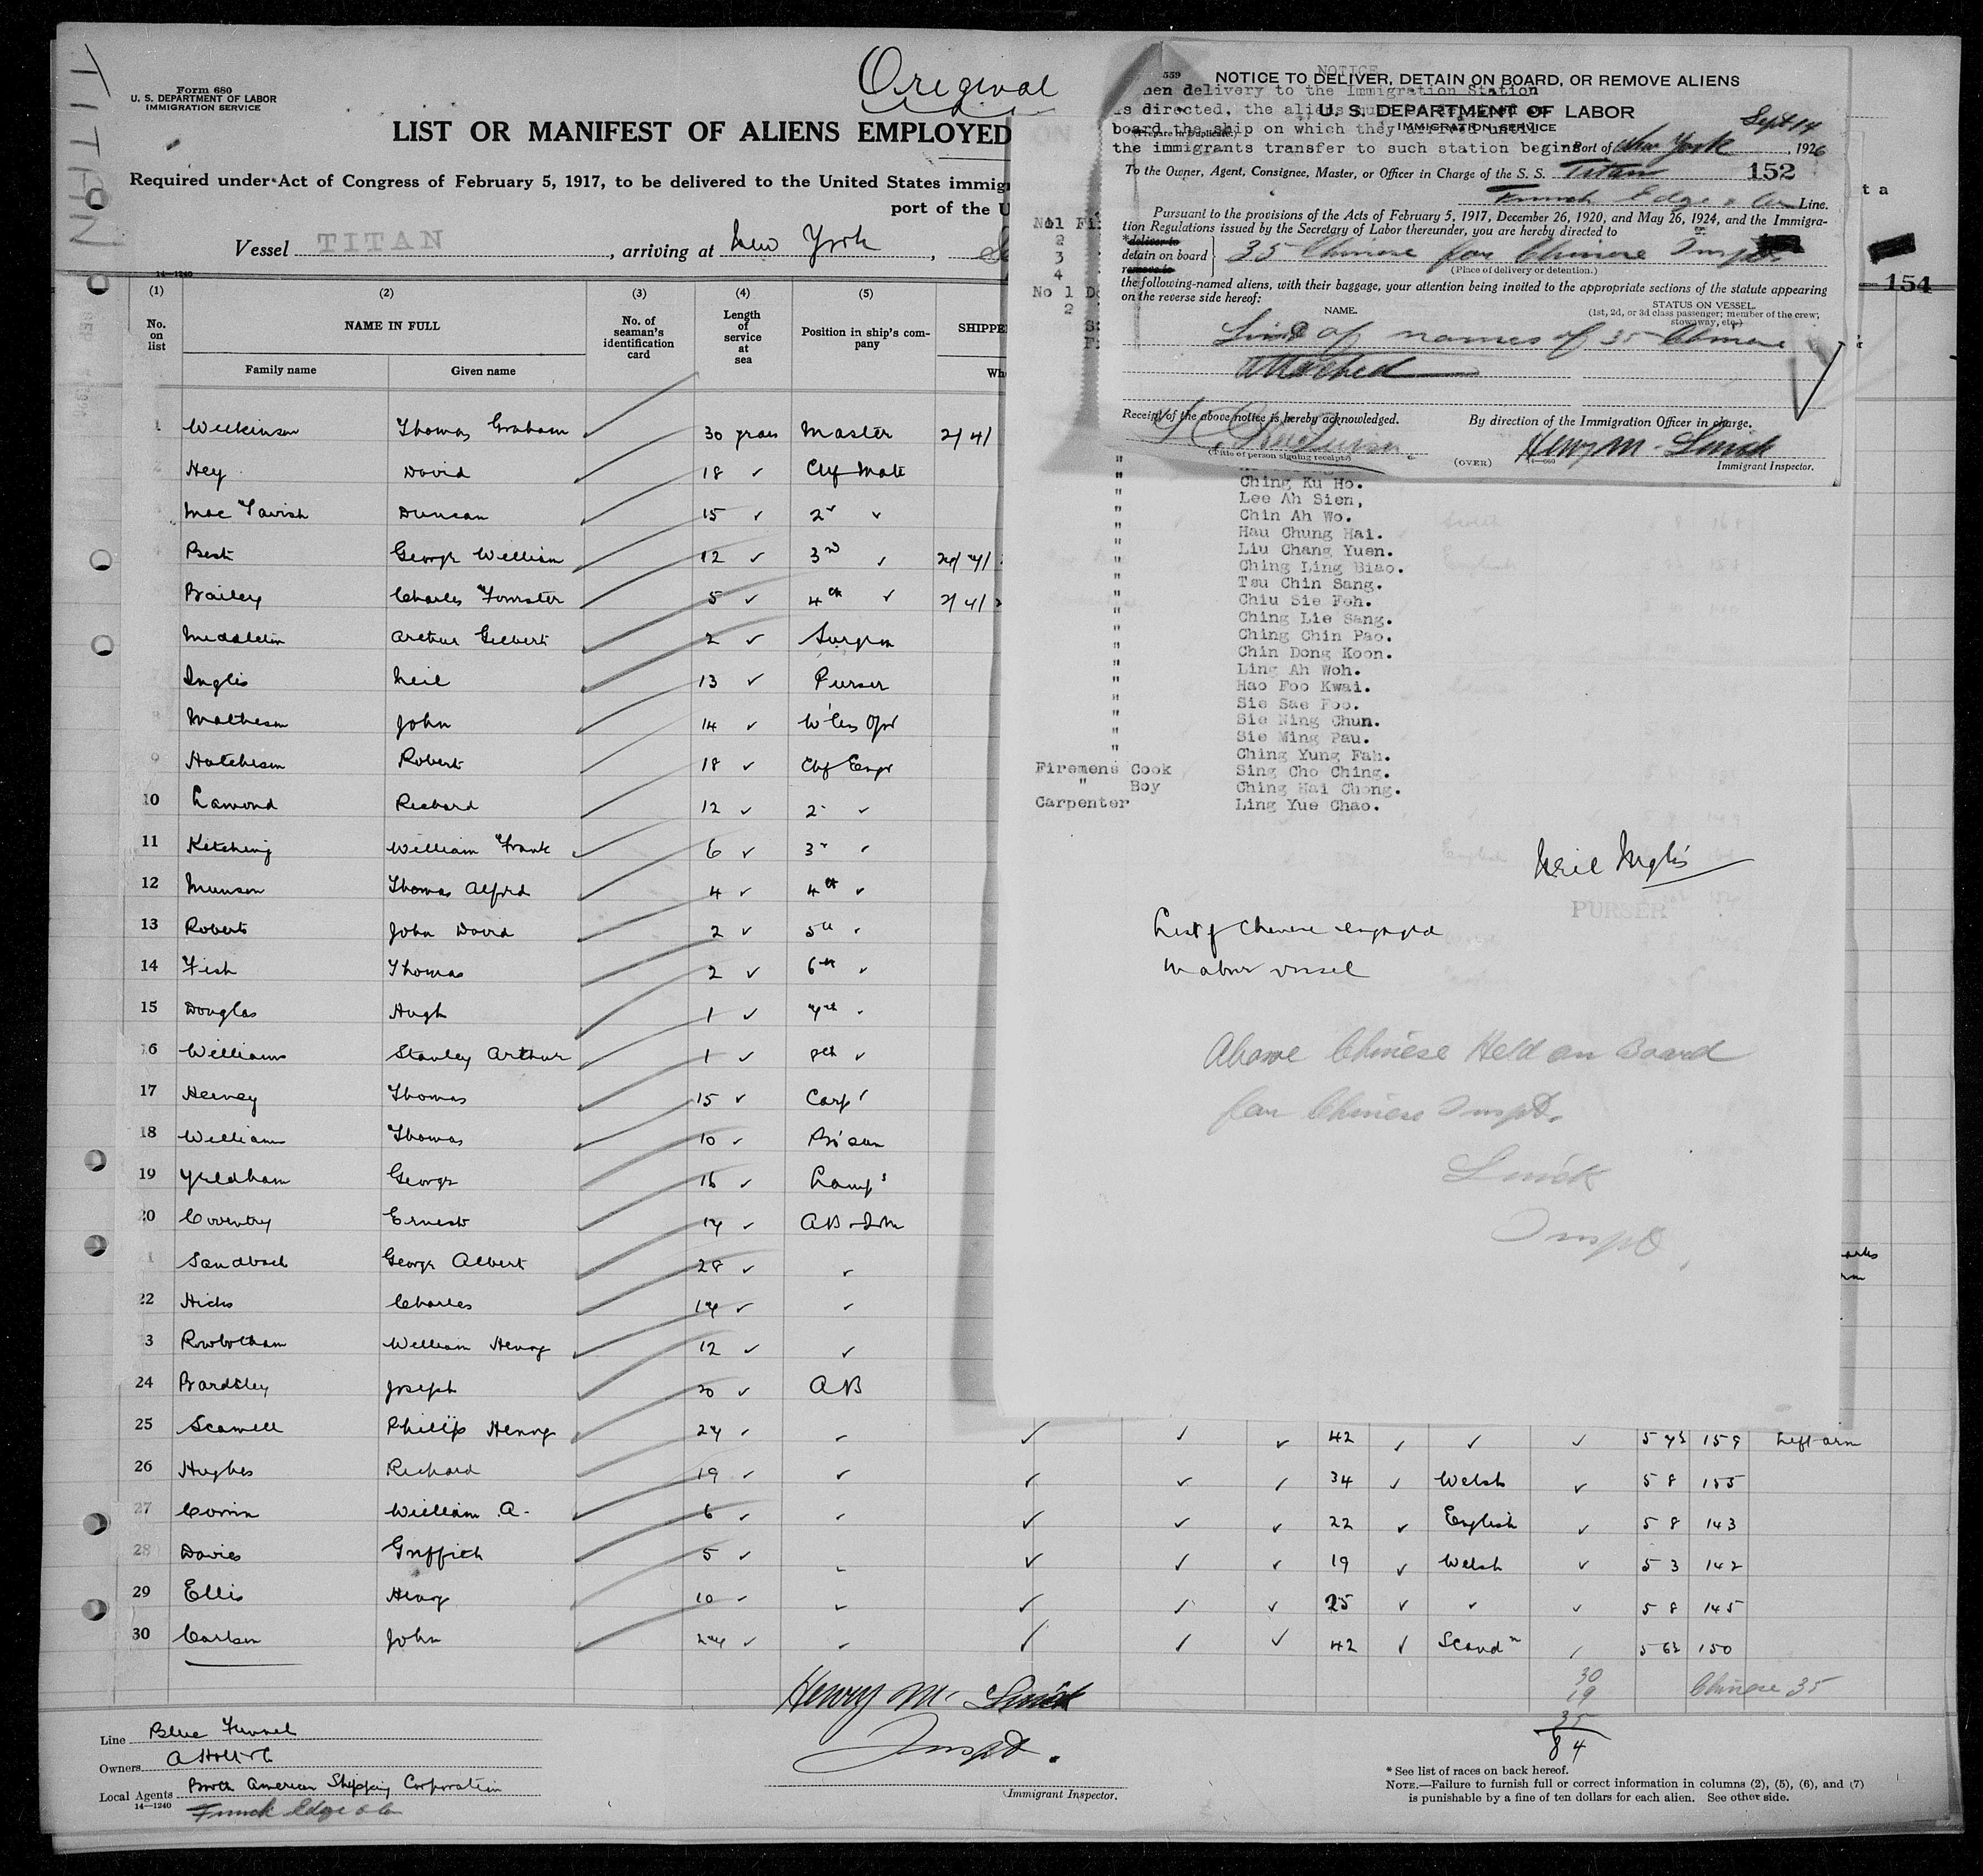 TITAN
Form 680
U. S. DEPARTMENT OF LABOR
IMMIGRATION SERVICE
Original
LIST OR MANIFEST OF ALIENS EMPLOYED
Required under Act of Congress of February 5, 1917, to be delivered to the United States immig
port of the U
Vessel TITAN , arriving at New York ,
14—1240
(1) (2) (3) (4) (5)
No. on list NAME IN FULL No. of seaman's identification card Length of service at sea Position in ship's company SHIPPE
Family name Given name Wh
Thomas Graham 30 years Master
Hey David 18 ✓ Chf Mate
Mac Tavish Duncan 15 ✓ 2
Best George William 12 ✓ 3rd
Bailey Charles 5 ✓ 4th ✓
Arthur Gilbert 2 ✓ Surgeon
Inglis Neil 13 ✓ Purser
Matheson John 14 ✓ W'less Opr
9 Hutcheson Robert 18 ✓ Chf Engr
10 Lamond Richard 12 ✓ 2
11 Kitching William Frank 6 ✓ 3
12 Munson Thomas Alfred 4 ✓ 4th ✓
13 Roberts John David 2 ✓ 5th
14 Fish Thomas 2 ✓ 6th ✓
15 Douglas Hugh 1 ✓ 7th
16 Williams Stanley Arthur 1 ✓ 8th ✓
17 Thomas 15 ✓ Carpr
18 Williams Thomas 10 ✓ Bo'sun
19 Yeldham George 16 ✓ Lamps
20 Coventry Ernest 14 ✓ AB
Sandbach George Albert 28 ✓
22 Hicks Charles 14 ✓ ✓
3 Rowbotham William Henry 12 ✓ ✓
24 Bardsley Joseph 20 ✓ AB
25 Scamell Phillip Henry 24 ✓ 42 ✓ ✓ ✓ 159 Left arm
26 Hughes Richard 19 ✓ 34 ✓ Welsh ✓ 5 8 155
27 William A. 6 ✓ 22 ✓ English ✓ 5 8 143
28 Davies Griffith 5 ✓ 19 ✓ Welsh ✓ 5 3 142
29 Ellis Henry 10 ✓ 25 ✓ ✓ ✓ 5 8 145
30 Carlson John 24 ✓ 42 ✓ Scandn 150
30
19
35
84
Chinese 35
Henry M. Smick
Inspt.
Immigrant Inspector.
Line Blue Funnel
Owners A Holt & Co
Local Agents North American Shipping Corporation
14—1240
Funch Edye & Co
* See list of races on back hereof.
NOTE.—Failure to furnish full or correct information in columns (2), (5), (6), and (7)
is punishable by a fine of ten dollars for each alien. See other side.
559
NOTICE
NOTICE TO DELIVER, DETAIN ON BOARD, OR REMOVE ALIENS
hen delivery to the Immigration Station
U. S. DEPARTMENT OF LABOR
IMMIGRATION SERVICE
is directed, the aliens
board the ship on which they arrived until
the immigrants transfer to such station begins
(Prepare in Duplicate)
Port of New York Sept 14, 1926
To the Owner, Agent, Consignee, Master, or Officer in Charge of the S. S. Titan 152
Funch Edye & Co Line.
Pursuant to the provisions of the Acts of February 5, 1917, December 26, 1920, and May 26, 1924, and the Immigra-
tion Regulations issued by the Secretary of Labor thereunder, you are hereby directed to
*deliver to
detain on board
remove to
35 Chinese for Chinese Inspt.
(Place of delivery or detention.)
the following-named aliens, with their baggage, your attention being invited to the appropriate sections of the statute appearing
on the reverse side hereof:
NAME. STATUS ON VESSEL.
(1st, 2d, or 3d class passenger; member of the crew;
stowaway, etc.)
List of names of 35 Chinese
attached
Receipt of the above notice is hereby acknowledged. By direction of the Immigration Officer in charge.
Henry M. Smick
(Title of person signing receipt.) (OVER) 14—660 Immigrant Inspector.
154
No1 Fi
2
3
4
No 1 D
2
" Ching Ku Ho.
" Lee Ah Sien,
" Chin Ah Wo.
" Hau Chung Hai.
" Liu Chang Yuen.
" Ching Ling Biao.
" Tsu Chin Sang.
" Chiu Sie Foh.
" Ching Lie Sang.
" Ching Chin Pao.
" Chin Dong Koon.
" Ling Ah Woh.
" Hao Foo Kwai.
" Sie Sae Foo.
" Sie Ning Chun.
" Sie Ming Pau.
" Ching Yung Fah.
Firemens Cook Sing Cho Ching.
" Boy Ching Hai Chong.
Carpenter Ling Yue Chao.
Neil Inglis
PURSER
List of Chinese engaged
in above vessel
Above Chinese Held on Board
for Chinese Inspt.
Smick
Inspt.